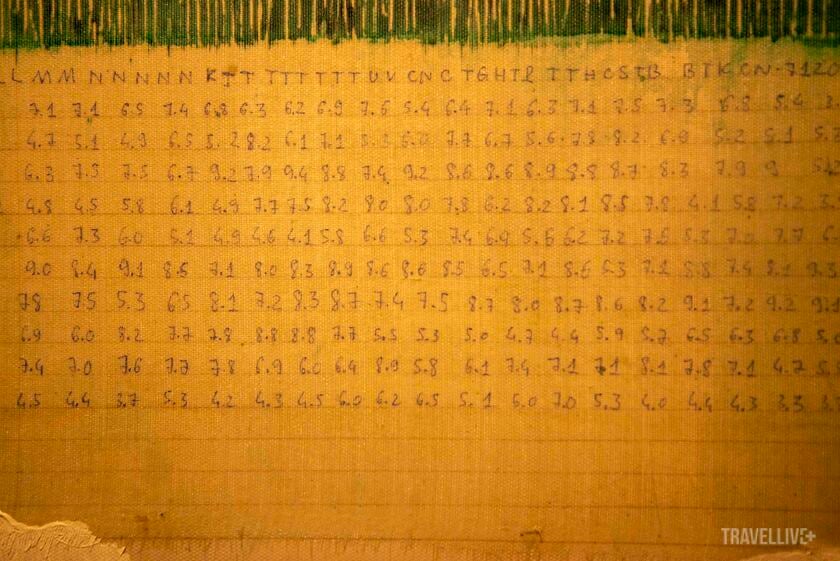 L M M N N N N N K T T T T T T T T U V C N C T G H T L T T H C S T B B T K C N - 7 1 2 0
7.1 7.1 6.5 7.4 6.8 6.3 6.2 6.9 7.6 5.4 6.4 7.1 6.3 7.1 7.5 7.3 6.8 5.4
4.7 5.1 4.9 6.5 5.2 8.2 6.1 7.1 6.0 7.7 6.7 5.6 7.8 8.2 6.0 5.2 5.1
6.3 7.5 7.5 6.7 9.2 7.9 9.4 8.8 7.4 9.2 8.6 8.6 8.9 8.8 8.7 8.3 7.9 9
4.8 4.5 5.8 6.1 4.9 7.7 7.5 8.2 8.0 8.0 7.8 6.2 8.2 8.1 8.5 7.8 4.1 5.8 7.2
6.6 7.3 6.0 5.1 4.9 4.6 4.1 5.8 6.6 5.3 7.4 6.9 5.6 6.2 7.2 7.6 5.8 7.0 7.7
9.0 8.4 9.1 8.6 7.1 8.0 8.3 8.9 8.6 8.6 8.5 6.5 7.1 8.6 6.3 7.1 8.8 7.4 8.1 9.3
78 7.5 5.3 6.5 8.1 7.2 8.3 8.7 7.4 7.5 8.7 8.0 8.7 8.6 8.2 9.1 7.2 9.2
6.9 6.0 8.2 7.7 7.8 8.8 8.8 7.7 5.5 5.3 5.0 4.7 4.4 5.9 5.7 6.5 6.3 6.8 5.0
7.4 7.0 7.6 7.7 7.8 6.9 6.0 6.4 8.9 5.8 6.1 7.4 7.1 7.1 8.1 7.8 7.1 4.7
4.5 4.4 3.7 5.3 4.2 4.3 4.5 6.0 6.2 6.5 5.1 6.0 7.0 5.3 4.0 4.4 4.3 3.3
TRAVELLIVE+